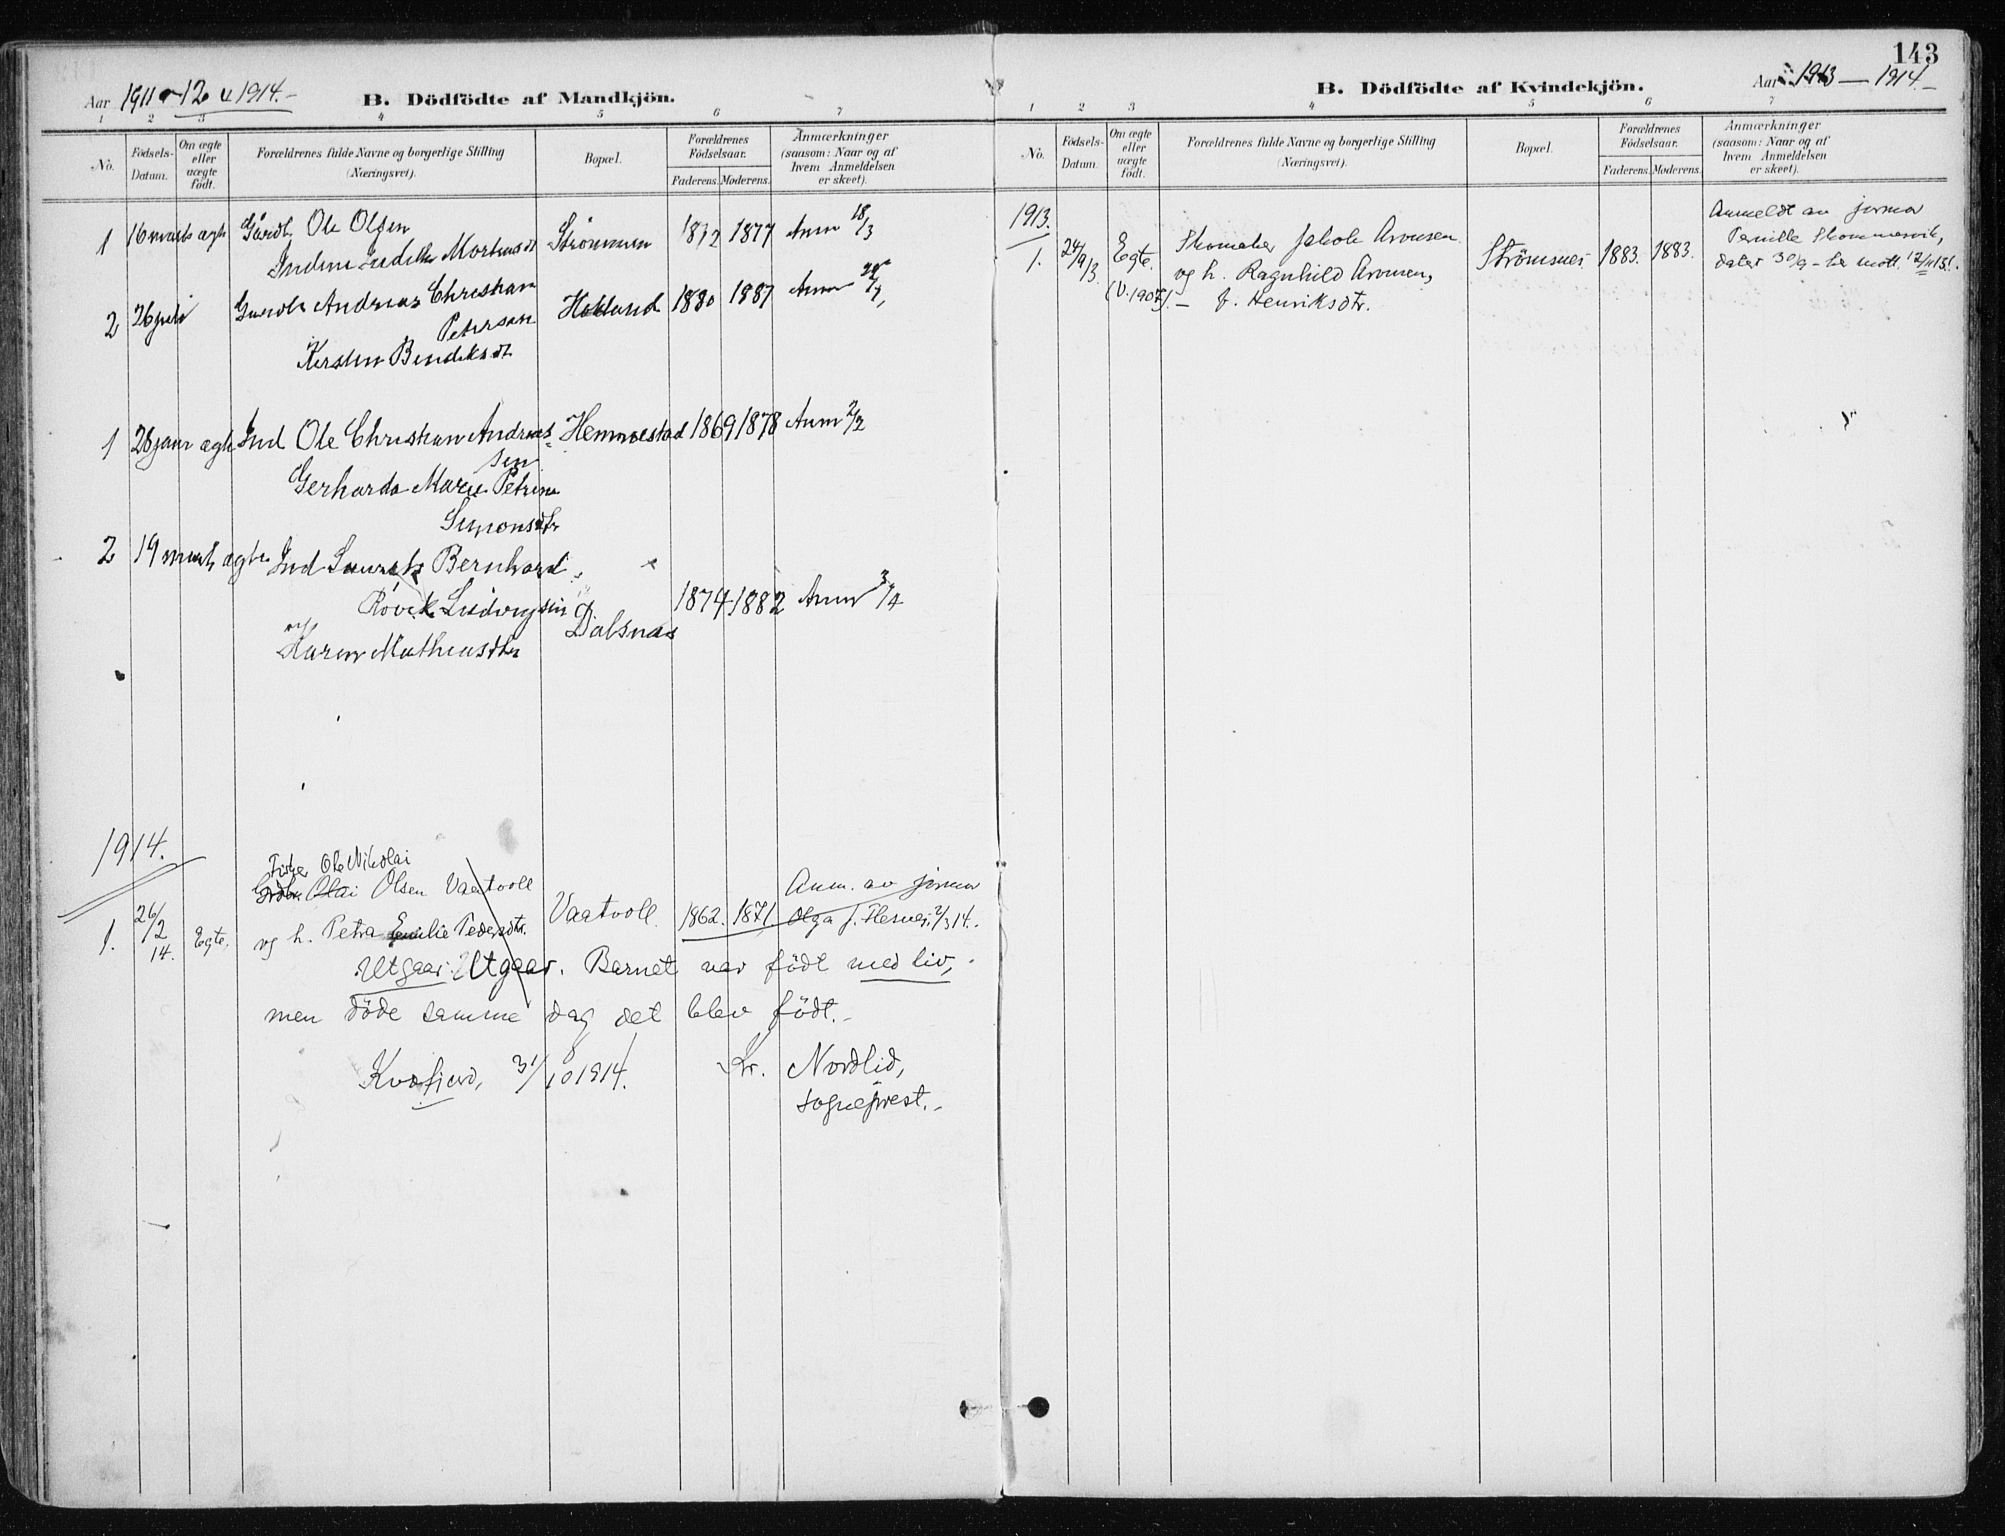 143
Aar 1911 - 12 u 1914.-
B. Dödfödte af Mandkjön.
1 2 3 4 5 6 7
No.
Födsels-Datum.
Om ægte eller uægte født.
Forældrenes fulde Navne og borgerlige Stilling
(Næringsvei).
Bopæl.
Forældrenes Födselsaar.
Faderens. Moderens.
Anmærkninger
(saasom: Naar og af
hvem Anmeldelsen
er skeet).
1 16 marts ægte Gaardb Ole Olsen Strømmen 1872 1877 Anm 18/3
Mortensdt
2 26 juli Gaardb Andreas Christian Hokland 1880 1887 Anm
Petersen
Kersten Bendiksdt
1 28 janr ægte Ind Ole Christian Andreas- Hemmestad 1869 1878 Anm 2/2
sen
Gerharda Marie Petrine
Simonsdtr
2 19 marts ægte Ind Laurits Bernhard
Røvik Ludvigsen Dalsnæs 1874 1882 Anm 3/4
og Karen Mathiasdtr
1914.
Fisker Ole Nikolai
Grdbr. Olai Olsen Vaatvoll
1. 26/2 14. Egte. og h. Petra Emilie Pedersdtr. Vaatvoll 1862. 1871. Anm. av jormor
Olga J. Hesnes. 2/3 14.
Utgaar. Utgaar. Barnet var födt med liv,
men döde samme dag det blev födt.-
Kvæfjord, 31/10 1914. Kr. Nordlid,
sogneprest.-
Aar 1913 — 1914.-
B. Dödfödte af Kvindekjön.
1 2 3 4 5 6 7
No.
Födsels-Datum.
Om ægte eller uægte födt.
Forældrenes fulde Navne og borgerlige Stilling
(Næringsvei).
Bopæl.
Forældrenes Födselsaar.
Faderens. Moderens.
Anmærkninger
(saasom: Naar og af
hvem Anmeldelsen
er skeet).
1913.
1. 24/9 13. Egte. Skomaker Jakob Aronsen Strömsnes 1883. 1883. Anmeldt av jormor
(V. 1907). og h. Ragnhild Aronsen, Pernille
- f. Henriksdtr. dater 30/9 -